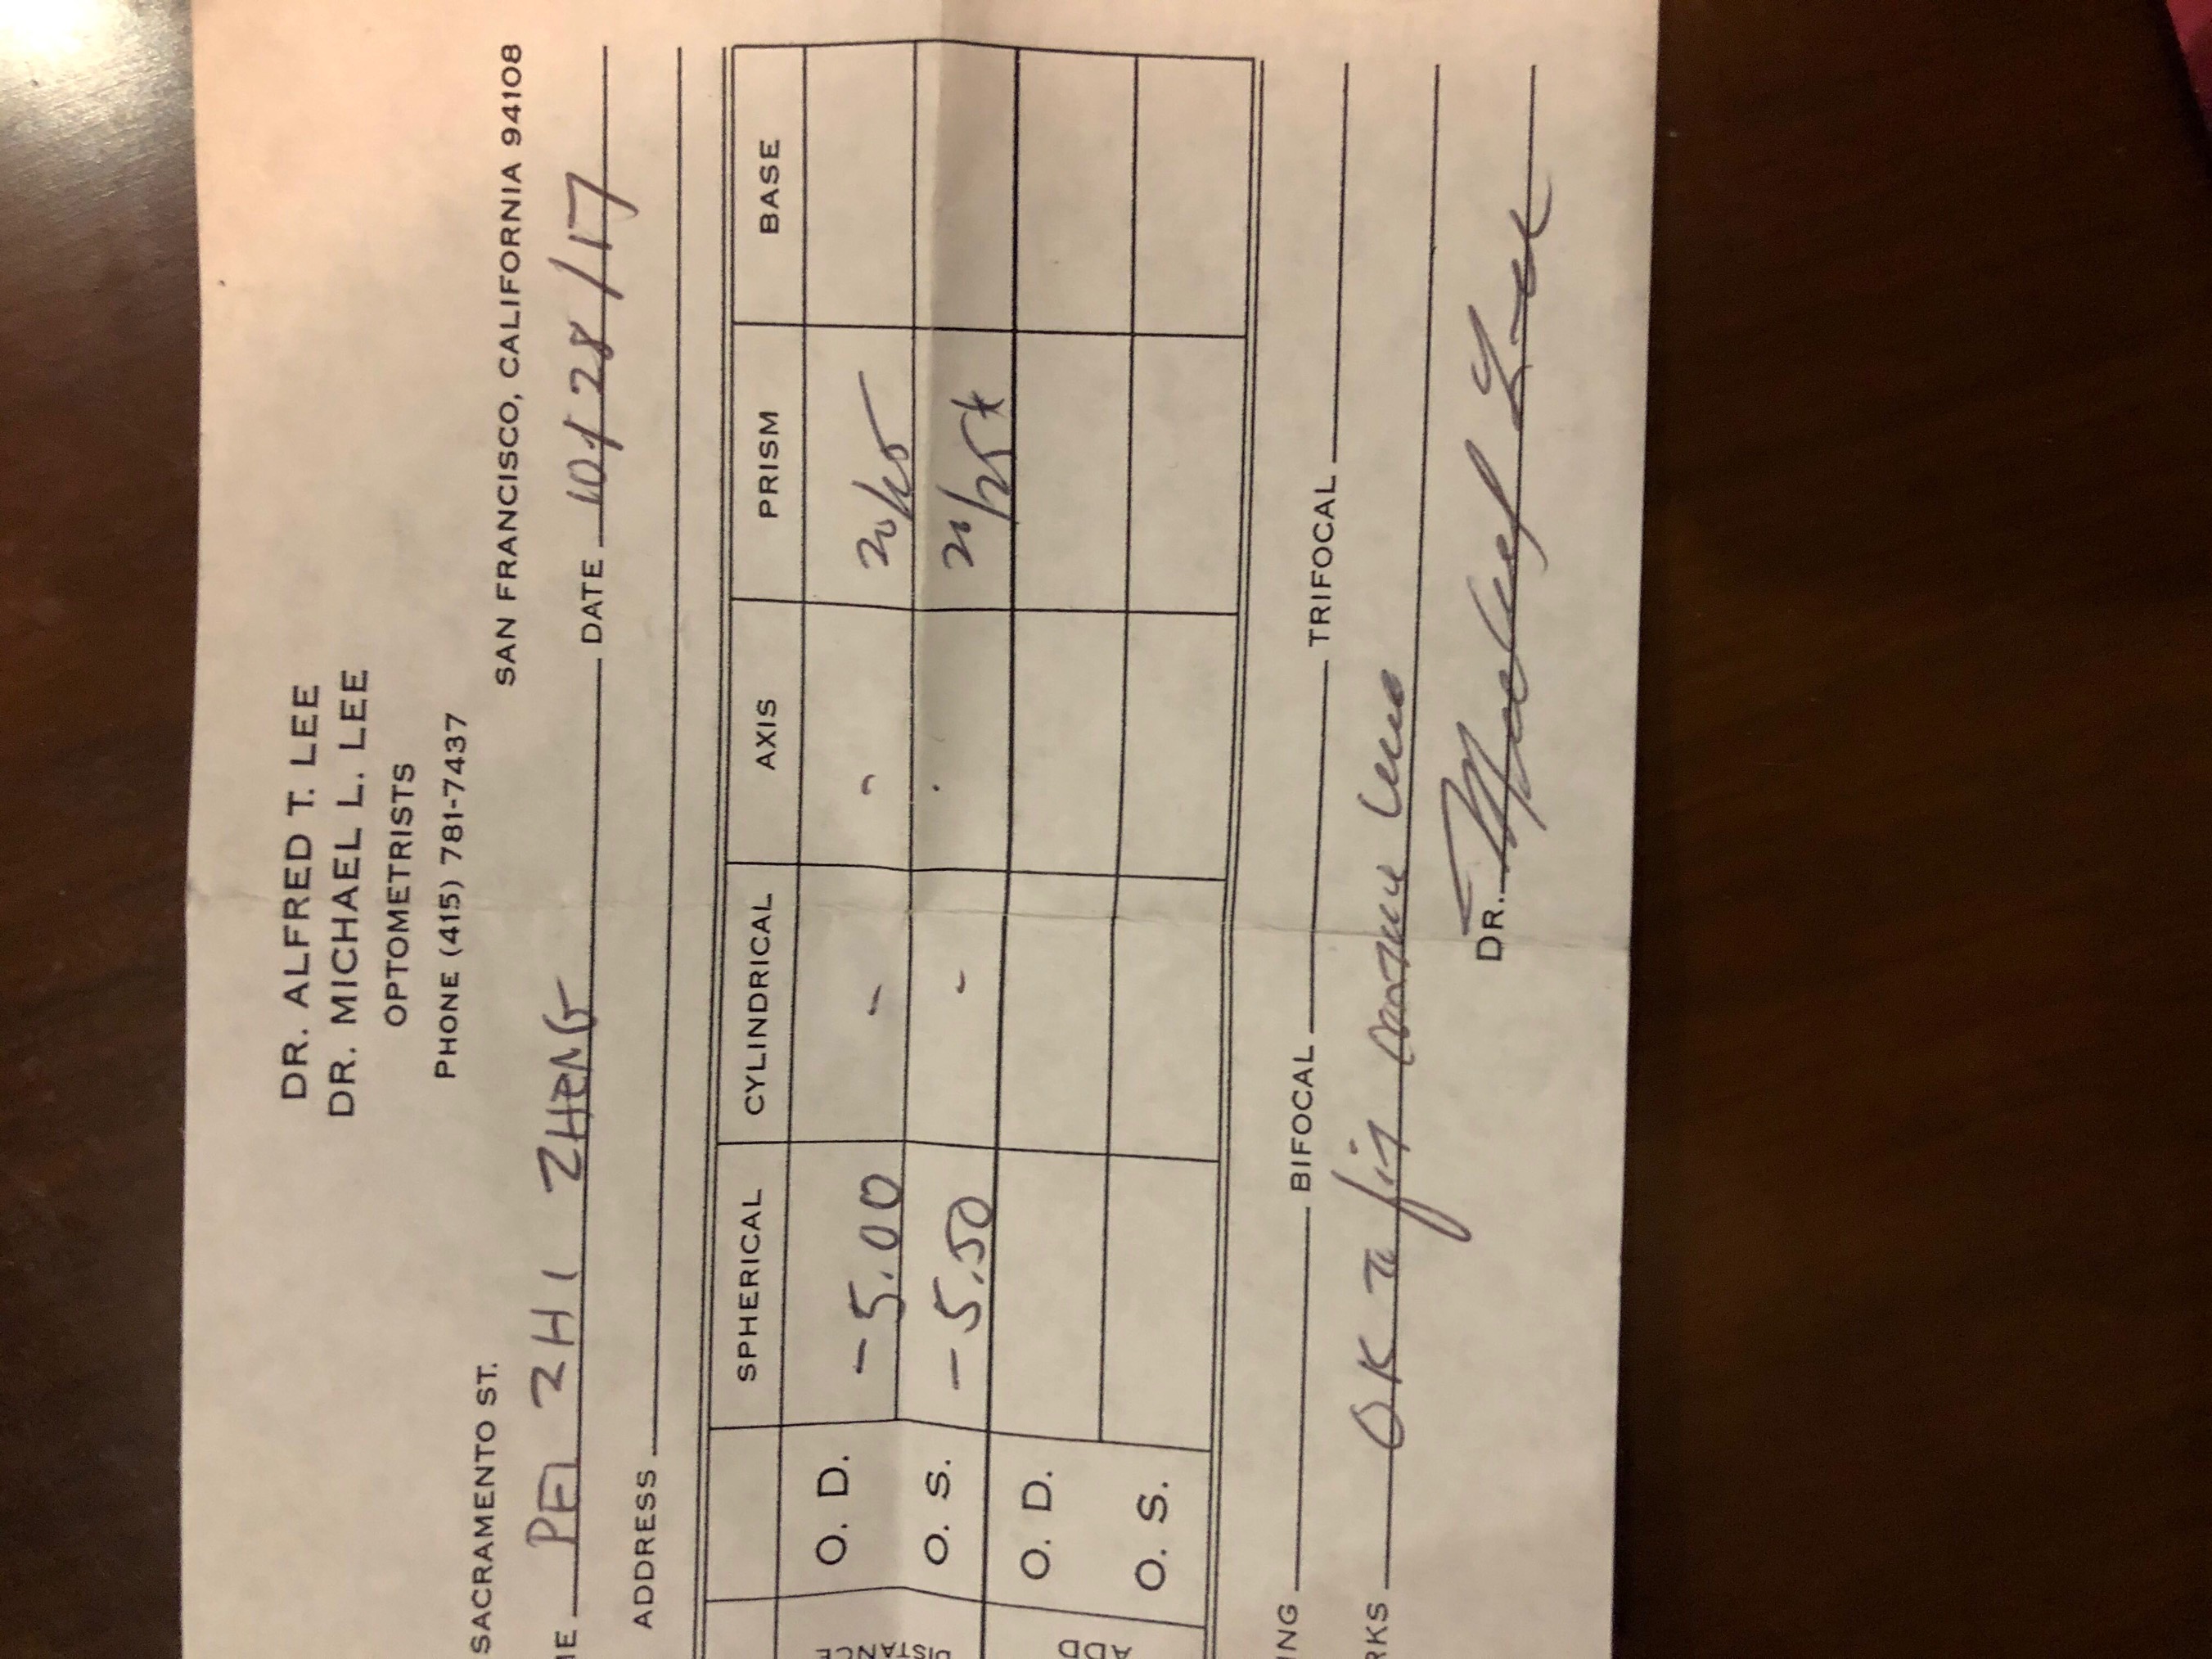 DR. ALFRED T. LEE
DR. MICHAEL L. LEE
OPTOMETRISTS
PHONE (415) 781-7437
SACRAMENTO ST.
SAN FRANCISCO, CALIFORNIA 94108
ME PEI ZHI ZHENG DATE 10/28/17
ADDRESS
SPHERICAL CYLINDRICAL AXIS PRISM BASE
DISTANCE
O. D. -5.00 - - 20/25
O. S. -5.50 - 20/25+
ADD
O. D.
O. S.
ING BIFOCAL TRIFOCAL
RKS OK to fit contact lens
DR. Michael Lee